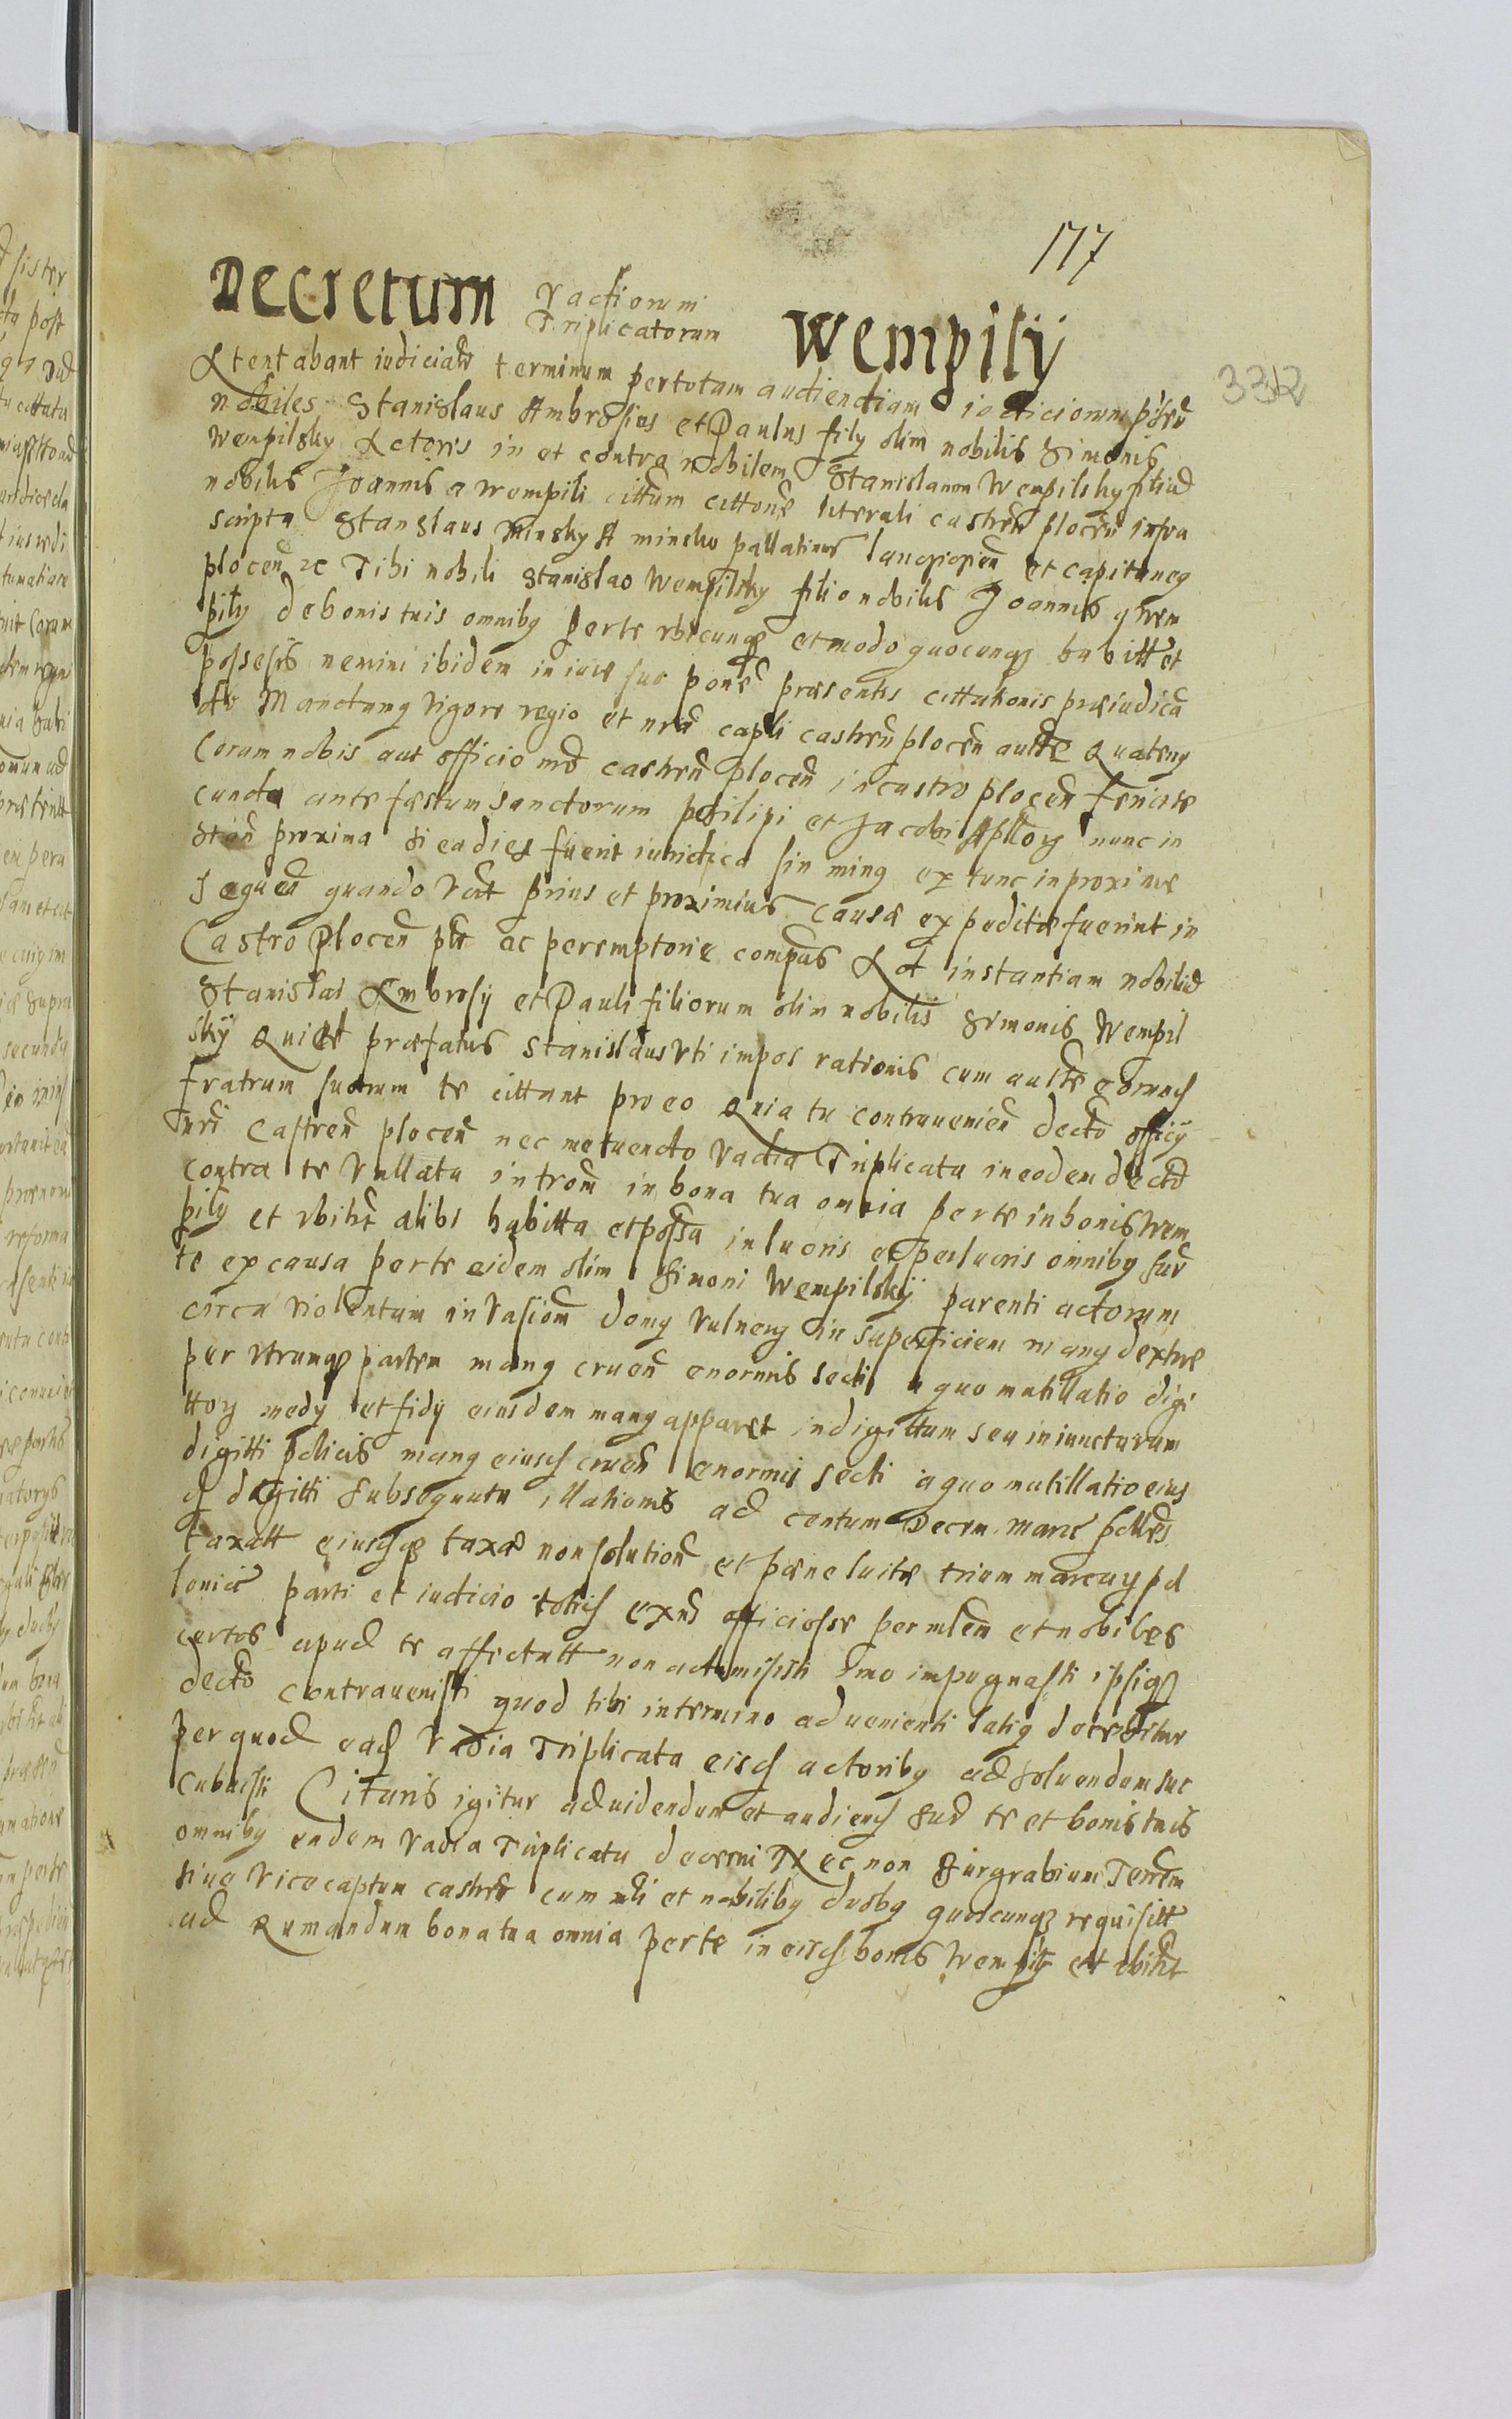 177
Decretum Vadiorum Triplicatorum Wempily
3312
Attentabant iudicialr terminum pertotam audientiam iudiciorum pñtiũ
nobiles Stanislaus Ambrosius et Paulus fily olim nobilis Simonis
Wempilsky Actores in et contra nobilem Stanislaum Wempilsky filiũ
nobilis Joannis a wempili cittũm cittone literali castreñ plocen infra
scripta Stanslaus Minsky A minsko pallatinus lancicien et capitaneq
plocen zc Tibi nobili Stanislao Wempilsky filio nobilis Joannis
pily de bonis tuis omnibq perte vbicunq et modo quocunq habitt et
possessis nemini ibidem in iure suo ponẽ præsentis cittationis præiudicã
do Mandamq vigore regio et nrã capli castreñ plocen autte Quatenq
Coram nobis aut officio nrõ castreñ plocen in castro plocen feria
cunda ante fæstum sanctorum philipi et Jacobi Apllorq nunc in
stañ proxima si ea dies fuerit iuridica sin minq ex tunc in proxime
sequeñ quando prius et proximius causæ expeditæ fuerint in
Castro Plocen plr ac peremptorie compãs Ad instantiam nobiliũ
Stanislai Ambrosy et Pauli filiorum olim nobilis Simonis Wempil
sky præfatus Stanislaus vti impos rationis cum autte
fratrum suorum te cittant pro eo Quia tu contraueniẽ dectõ officy
nrĩ Castreñ plocen nec metuendo Vadia Triplicata in eodem dectõ
contra te Vallata introm in bona tua omnia perte in bonis wem
pily et vbilit alibi habitta et possa in lucris et perlucris omnibq sup
te ex causa perte eidem olim Simoni Wempilsky parenti actorum
circa violentam inVasiom domq vulnerq in superficiem manq dextre
per vtramq partem manq crueñ enormis secti a quo mutillatio digi
ttorq medy et eiusdem manq apparet in digittum seu in iuncturam
digitti policis manq eiusd crueñ enormis secti a quo mutillatio eius
d digitti subsequuta illationis ad centum Decem marc pcllis
taxatt eiusdq taxæ non solutioñ et pæne luitæ trium marcarq po
lonic parti et iudicio totid officiosse per et nobiles
certos apud te affectatt non admisisti imo impugnasti ipsiq
dectõ contrauenisti quod tibi in termino aduenienti latiq docebitur
per quod ead Vadia Triplicata eisd actoribq ad soluendum suc
cubuisti Citaris igitur ad uidendum et audiend sup te et bonis tuis
omnibq eadem vadia Triplicata decerni Nec non Burgrabium
siue Vicecaptum castreñ cum et nobilibq duobq quoscunq requisitt
ad Rumandum bona tua omnia perte in eisd bonis wempily et vbilit